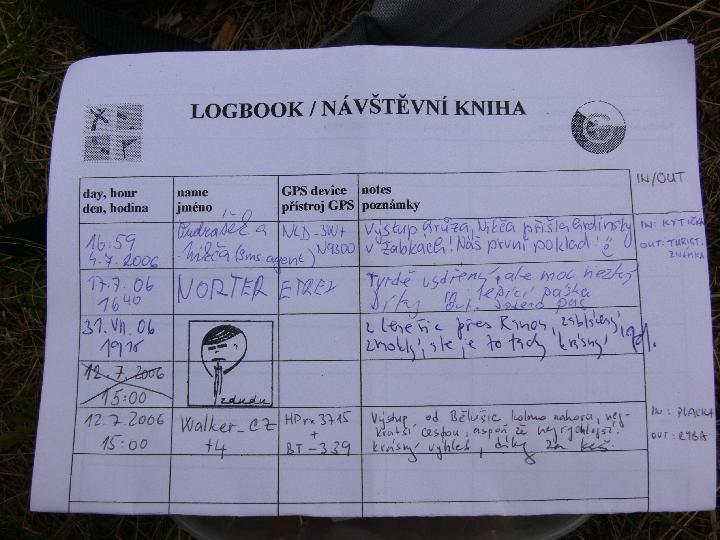 LOGBOOK / NÁVŠTĚVNÍ KNIHA
IN/OUT
day, hour
den, hodina
name
jméno
GPS device
přístroj GPS
notes
poznámky
16:59
4.7.2006
Ondrášek a
Nikča (sms.agent)
N9300
Výstup hrůza, Nikča přišla hrdinsky
v žabkách! Náš první poklad!
IN: KYTIČKA
OUT: TURIST.
ZNÁMKA
17.7.06
16 40
NORTER
ETREX
Tvrdě vydřený, ale moc hezký
Díky in. lepící páska
out.
31. VII. 06
19 15
zdudu
přes Ranou,
zmoklý, ale je to tady krásný
12.7.2006
15:00
12.7.2006
15:00
Walker_CZ
+4
HP rx3715
+
BT-339
Výstup od Bělušic kolmo nahoru, nej-
kratší cestou, aspoň že nejrychlejší.
krásný výhled, díky za keš.
IN: PLACKA
OUT: RYBA